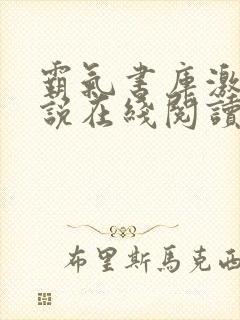 霸氣書庫激
説在綫閲讀
布里斯馬克西